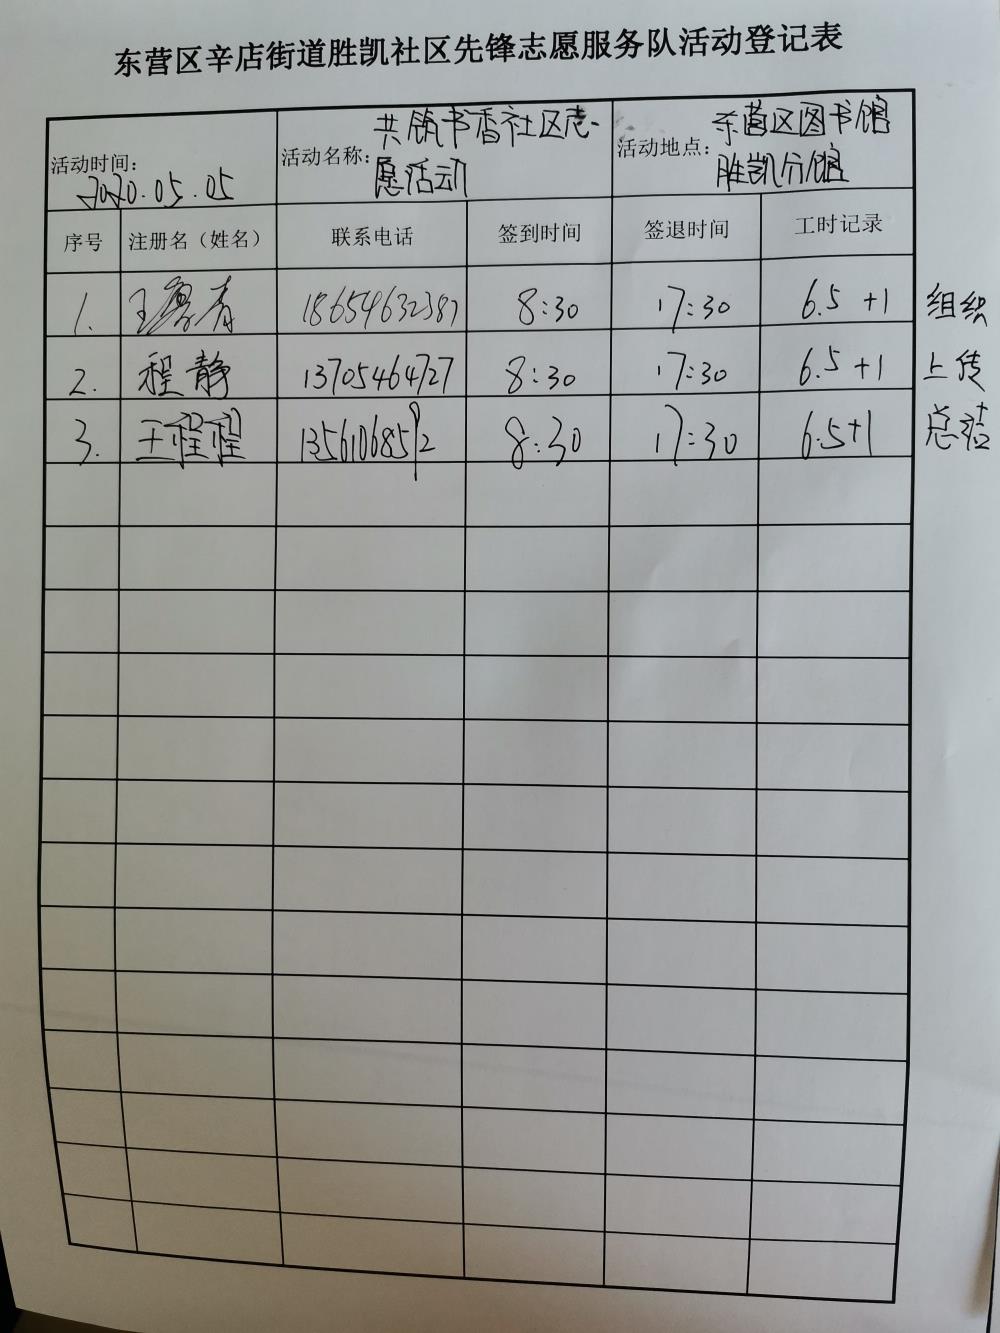 东营区辛店街道胜凯社区先锋志愿服务队活动登记表
活动时间: 2020.05.05 活动名称: 共筑书香社区志愿活动 活动地点: 东营区图书馆胜凯分馆
序号 注册名（姓名） 联系电话 签到时间 签退时间 工时记录
1. 王 青 18654632387 8:30 17:30 6.5 +1 组织
2. 程静 13705464727 8:30 17:30 6.5 +1 上传
3. 王程程 8:30 17:30 6.5+1 总结